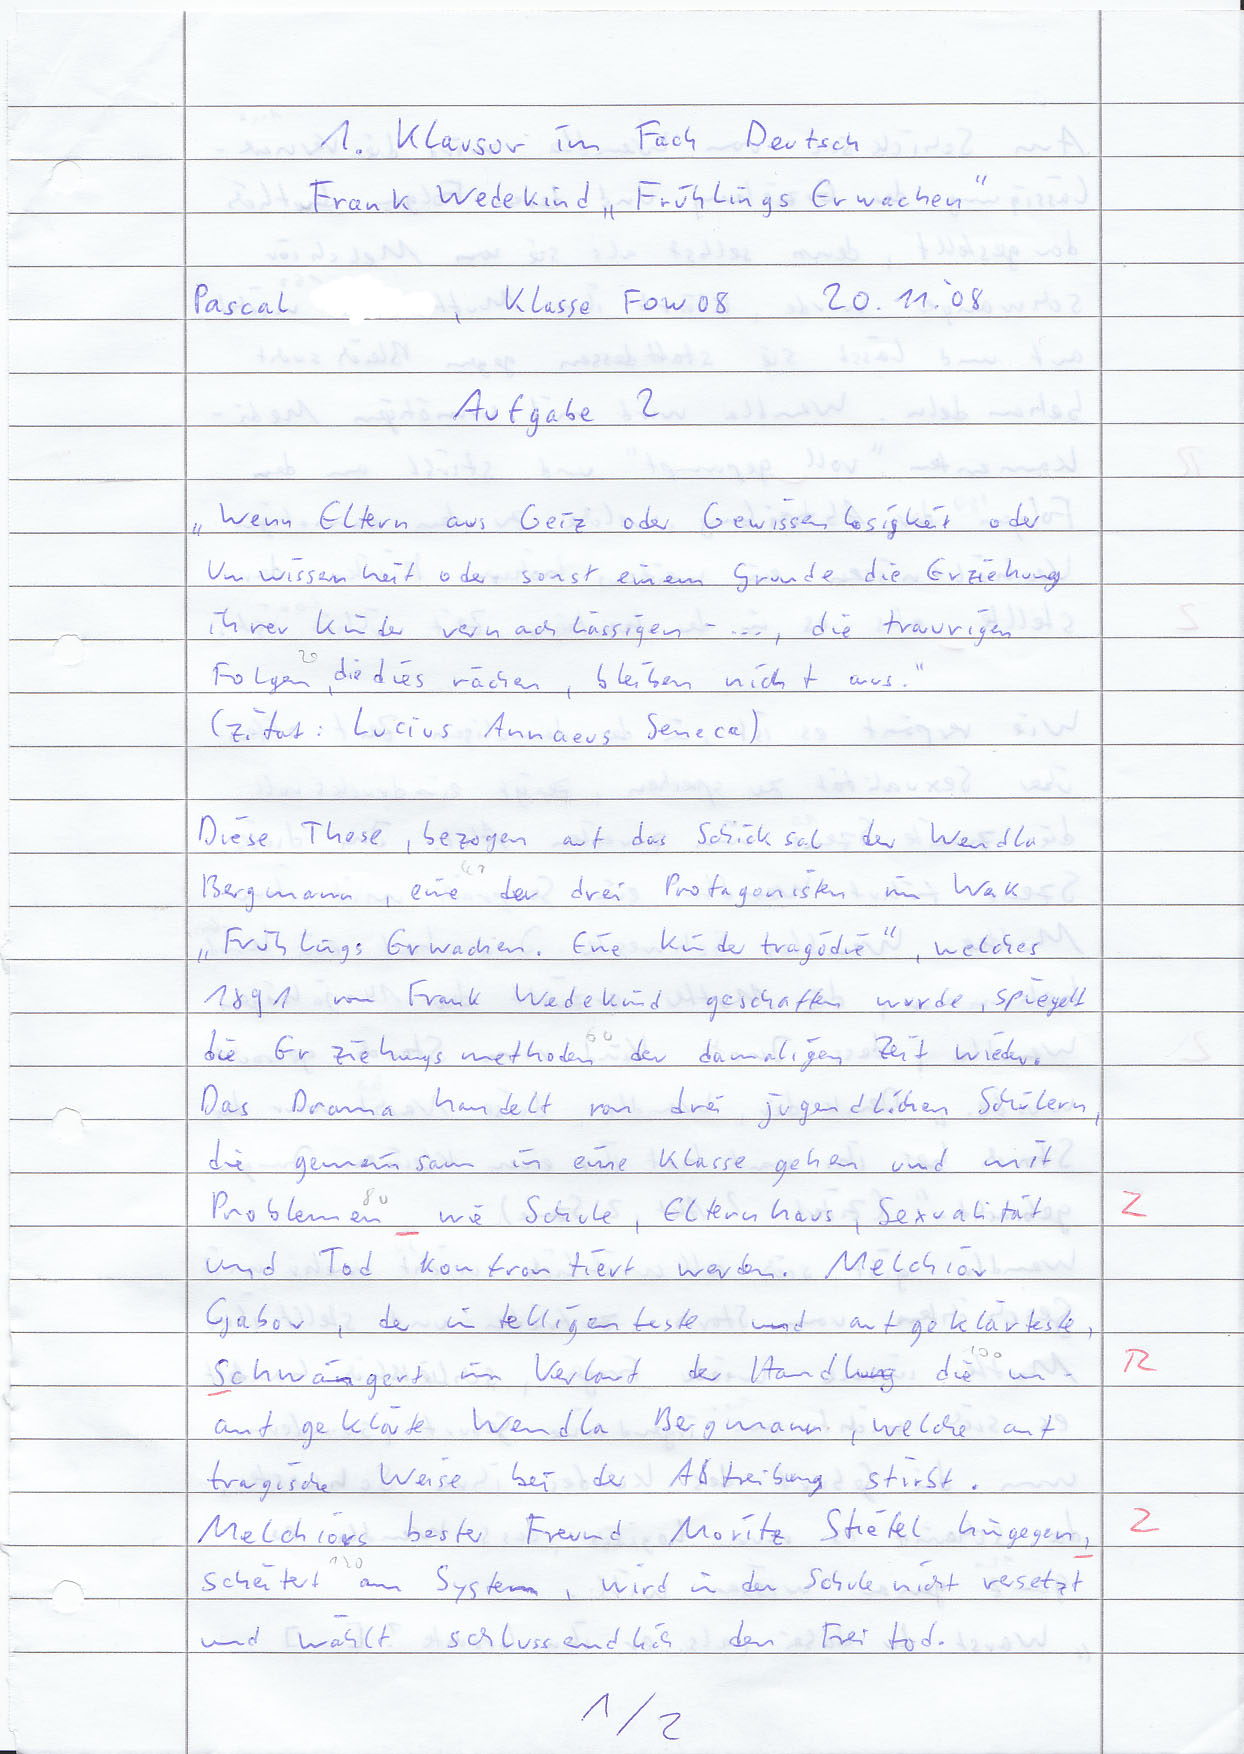 1. Klausur im Fach Deutsch
Frank Wedekind „Frühlings Erwachen"
Pascal , Klasse FOW08 20.11.'08
Aufgabe 2
„Wenn Eltern aus Geiz oder Gewissenlosigkeit oder
Unwissenheit oder sonst einem Grunde die Erziehung
ihrer Kinder vernachlässigen - ..., die traurigen
20
Folgen, die dies rächen, bleiben nicht aus."
(Zitat: Lucius Annaeus Seneca)
Diese These, bezogen auf das Schicksal der Wendla
40
Bergmann, eine der drei Protagonisten im Werk
„Frühlings Erwachen. Eine Kindertragödie", welches
1891 von Frank Wedekind geschaffen wurde, spiegelt
60
die Erziehungsmethoden der damaligen Zeit wieder.
Das Drama handelt von drei jugendlichen Schülern,
die gemeinsam in eine Klasse gehen und mit
80
Problemen wie Schule, Elternhaus, Sexualität Z
und Tod konfrontiert werden. Melchior
Gabor, der intelligenteste und aufgeklärteste,
100
Schwängert im Verlauf der Handlung die un- R
aufgeklärte Wendla Bergmann, welche auf
tragische Weise bei der Abtreibung stirbt.
Melchiors bester Freund Moritz Stiefel hingegen, Z
120
scheitert am System, wird in der Schule nicht versetzt
und wählt schlussendlich den Freitod.
1/2